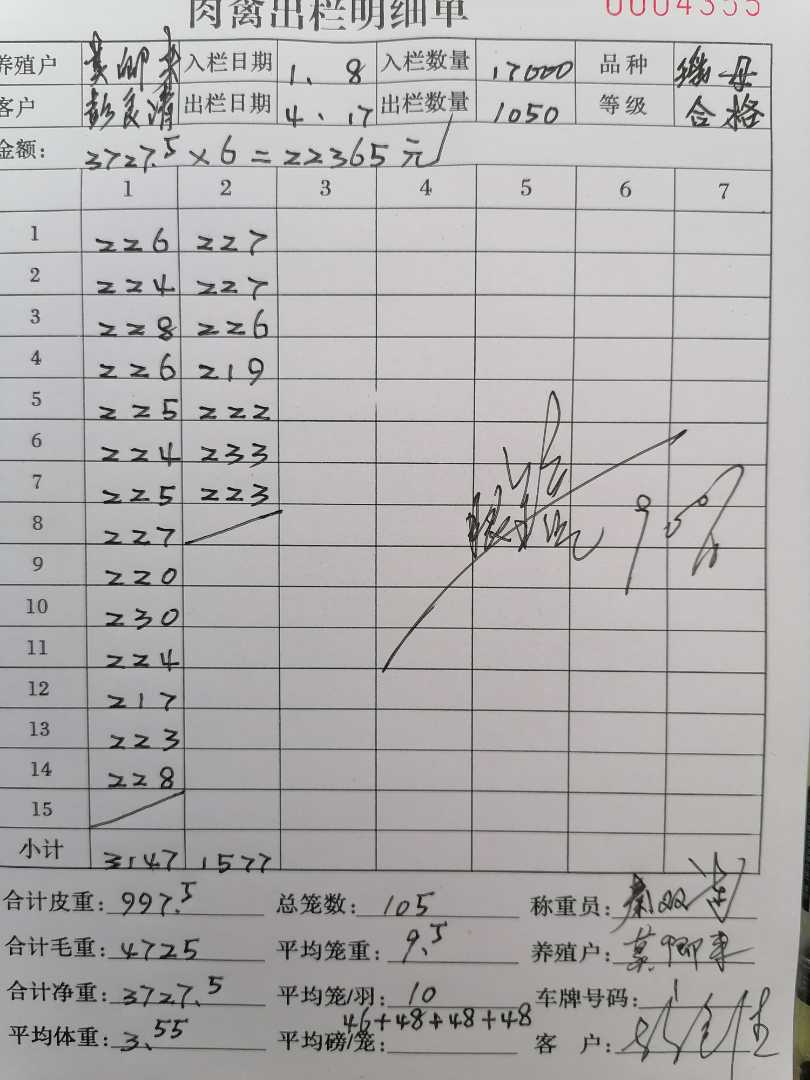 肉禽出栏明细单 0004355
养殖户 黄卿来 入栏日期 1、8 入栏数量 17000 品种
客户 出栏日期 4、17 出栏数量 1050 等级 合格
金额: 3727.5×6=22365元
1 2 3 4 5 6 7
1 226 227
2 224 227
3 228 226
4 226 219
5 225 222
6 224 233
7 225 223
8 227
9 220
10 230
11 224
12 217
13 223
14 228
15
小计 3147 1577
合计皮重: 997.5 总笼数: 105 称重员:
合计毛重: 4725 平均笼重: 9.5 养殖户:
合计净重: 3727.5 平均笼/羽: 10 车牌号码:
平均体重: 3.55 平均磅/笼: 46+48+48+48 客 户: